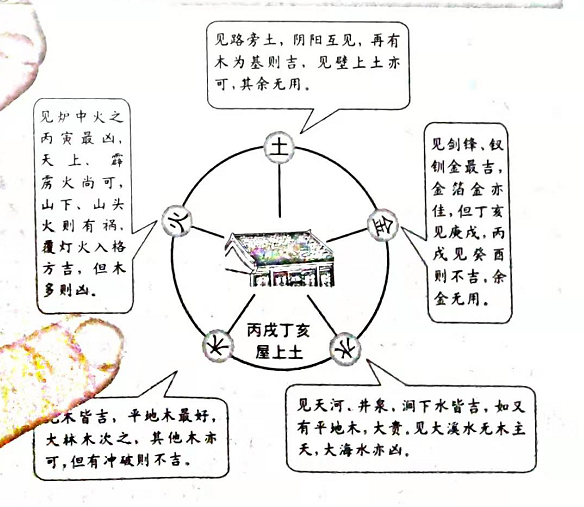 见路旁土，阴阳互见，再有
木为基则吉，见壁上土亦
可，其余无用。
见炉中火之
丙寅最凶，
天上、霹
雳火尚可，
山下、山头
火则有祸，
覆灯火入格
方吉，但木
多则凶。
见剑锋、钗
钏金最吉，
金箔金亦
佳，但丁亥
见庚戌，丙
戌见癸酉
则不吉，余
金无用。
土
火
金
木
水
丙戌丁亥
屋上土
木皆吉，平地木最好，
大林木次之，其他木亦
可，但有冲破则不吉。
见天河、井泉，涧下水皆吉，如又
有平地木，大贵。见大溪水无木主
夭，大海水亦凶。